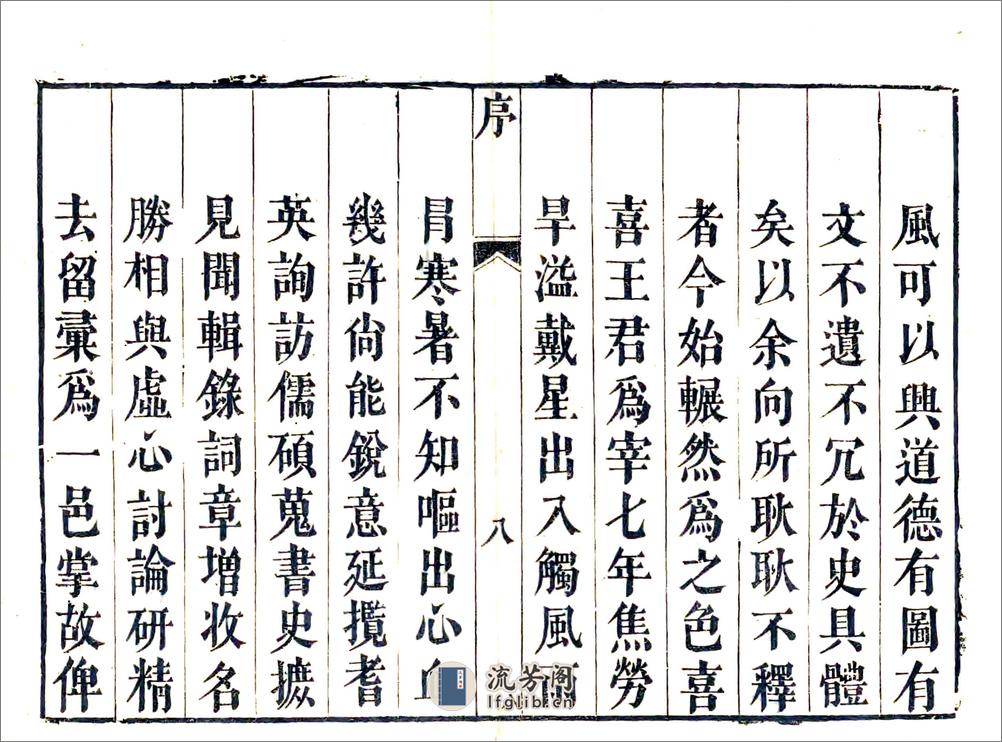 風可以興道德有圖有
文不遺不冗於史具體
矣以余向所耿耿不釋
者今始輾然爲之色喜
喜王君爲宰七年焦勞
旱溢戴星出入觸風雨
序
八
冐寒暑不知嘔出心血
幾許尙能銳意延攬耆
英詢訪儒碩蒐書史摭
見聞輯錄詞章增收名
勝相與虛心討論研精
去留彚爲一邑掌故俾
流芳阁
lfglib.cn